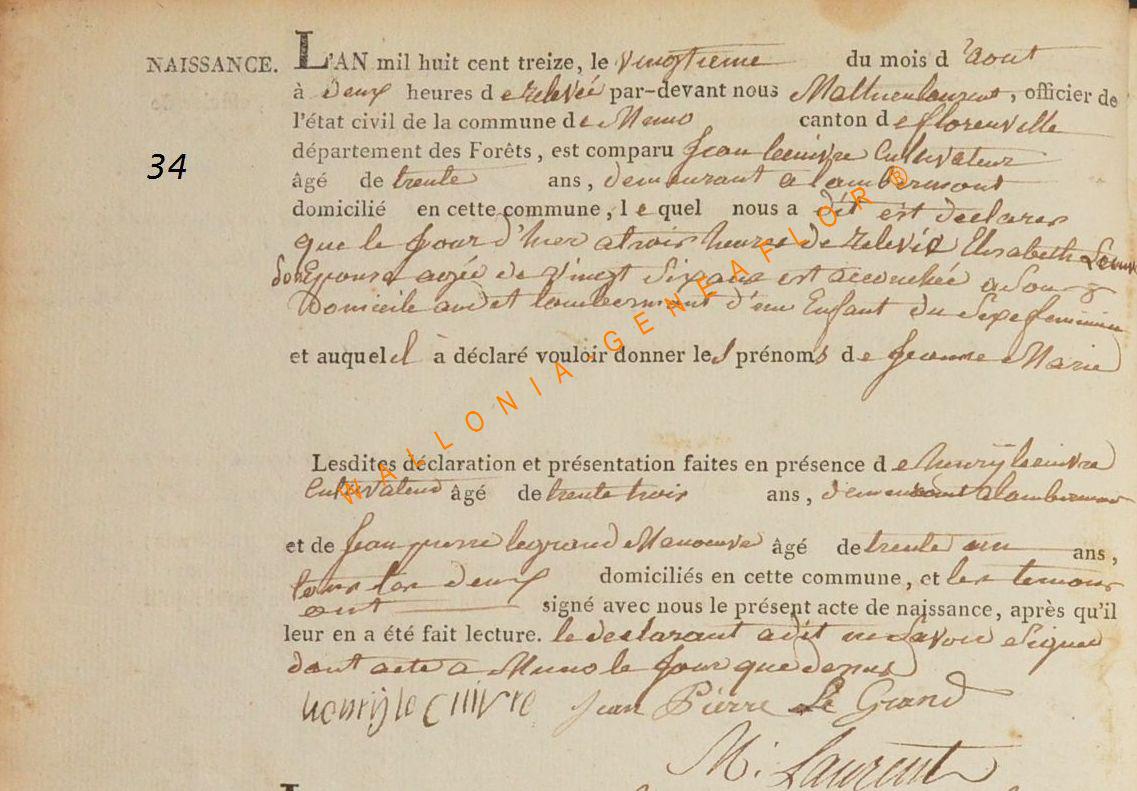 NAISSANCE. L'AN mil huit cent treize, le vingtieme du mois d'aout
à deux heures de relevée par-devant nous Mathieu laurent, officier de
l'état civil de la commune de Muno canton de florenville
34
département des Forêts, est comparu Jean lecuivre Cultivateur
âgé de trente ans, demeurant a lambermont
domicilié en cette commune, lequel nous a dit est declarer
que le Jour d'hier a trois heures de relevée Elisabeth
son Epouse agée de vingt Six ans est accouchée a Son
Domicile audit lambermont d'un Enfant du Sexe feminin
et auquel il à déclaré vouloir donner les prénoms de Jeanne Marie
Lesdites déclaration et présentation faites en présence de henry lecuivre
Cultivateur âgé de trente trois ans, demeurant a lambermont
et de Jean pierre legrand Manoeuvre âgé de trente un ans,
tous les deux domiciliés en cette commune, et les temoins
ont signé avec nous le présent acte de naissance, après qu'il
leur en a été fait lecture. le declarant a dit ne Savoir Signer
dont acte a Muno le Jour que dessus
henrij le cuivre Jean Pierre Le Grand
M. Laurent
WALLONIA-GENEAFLOR ®